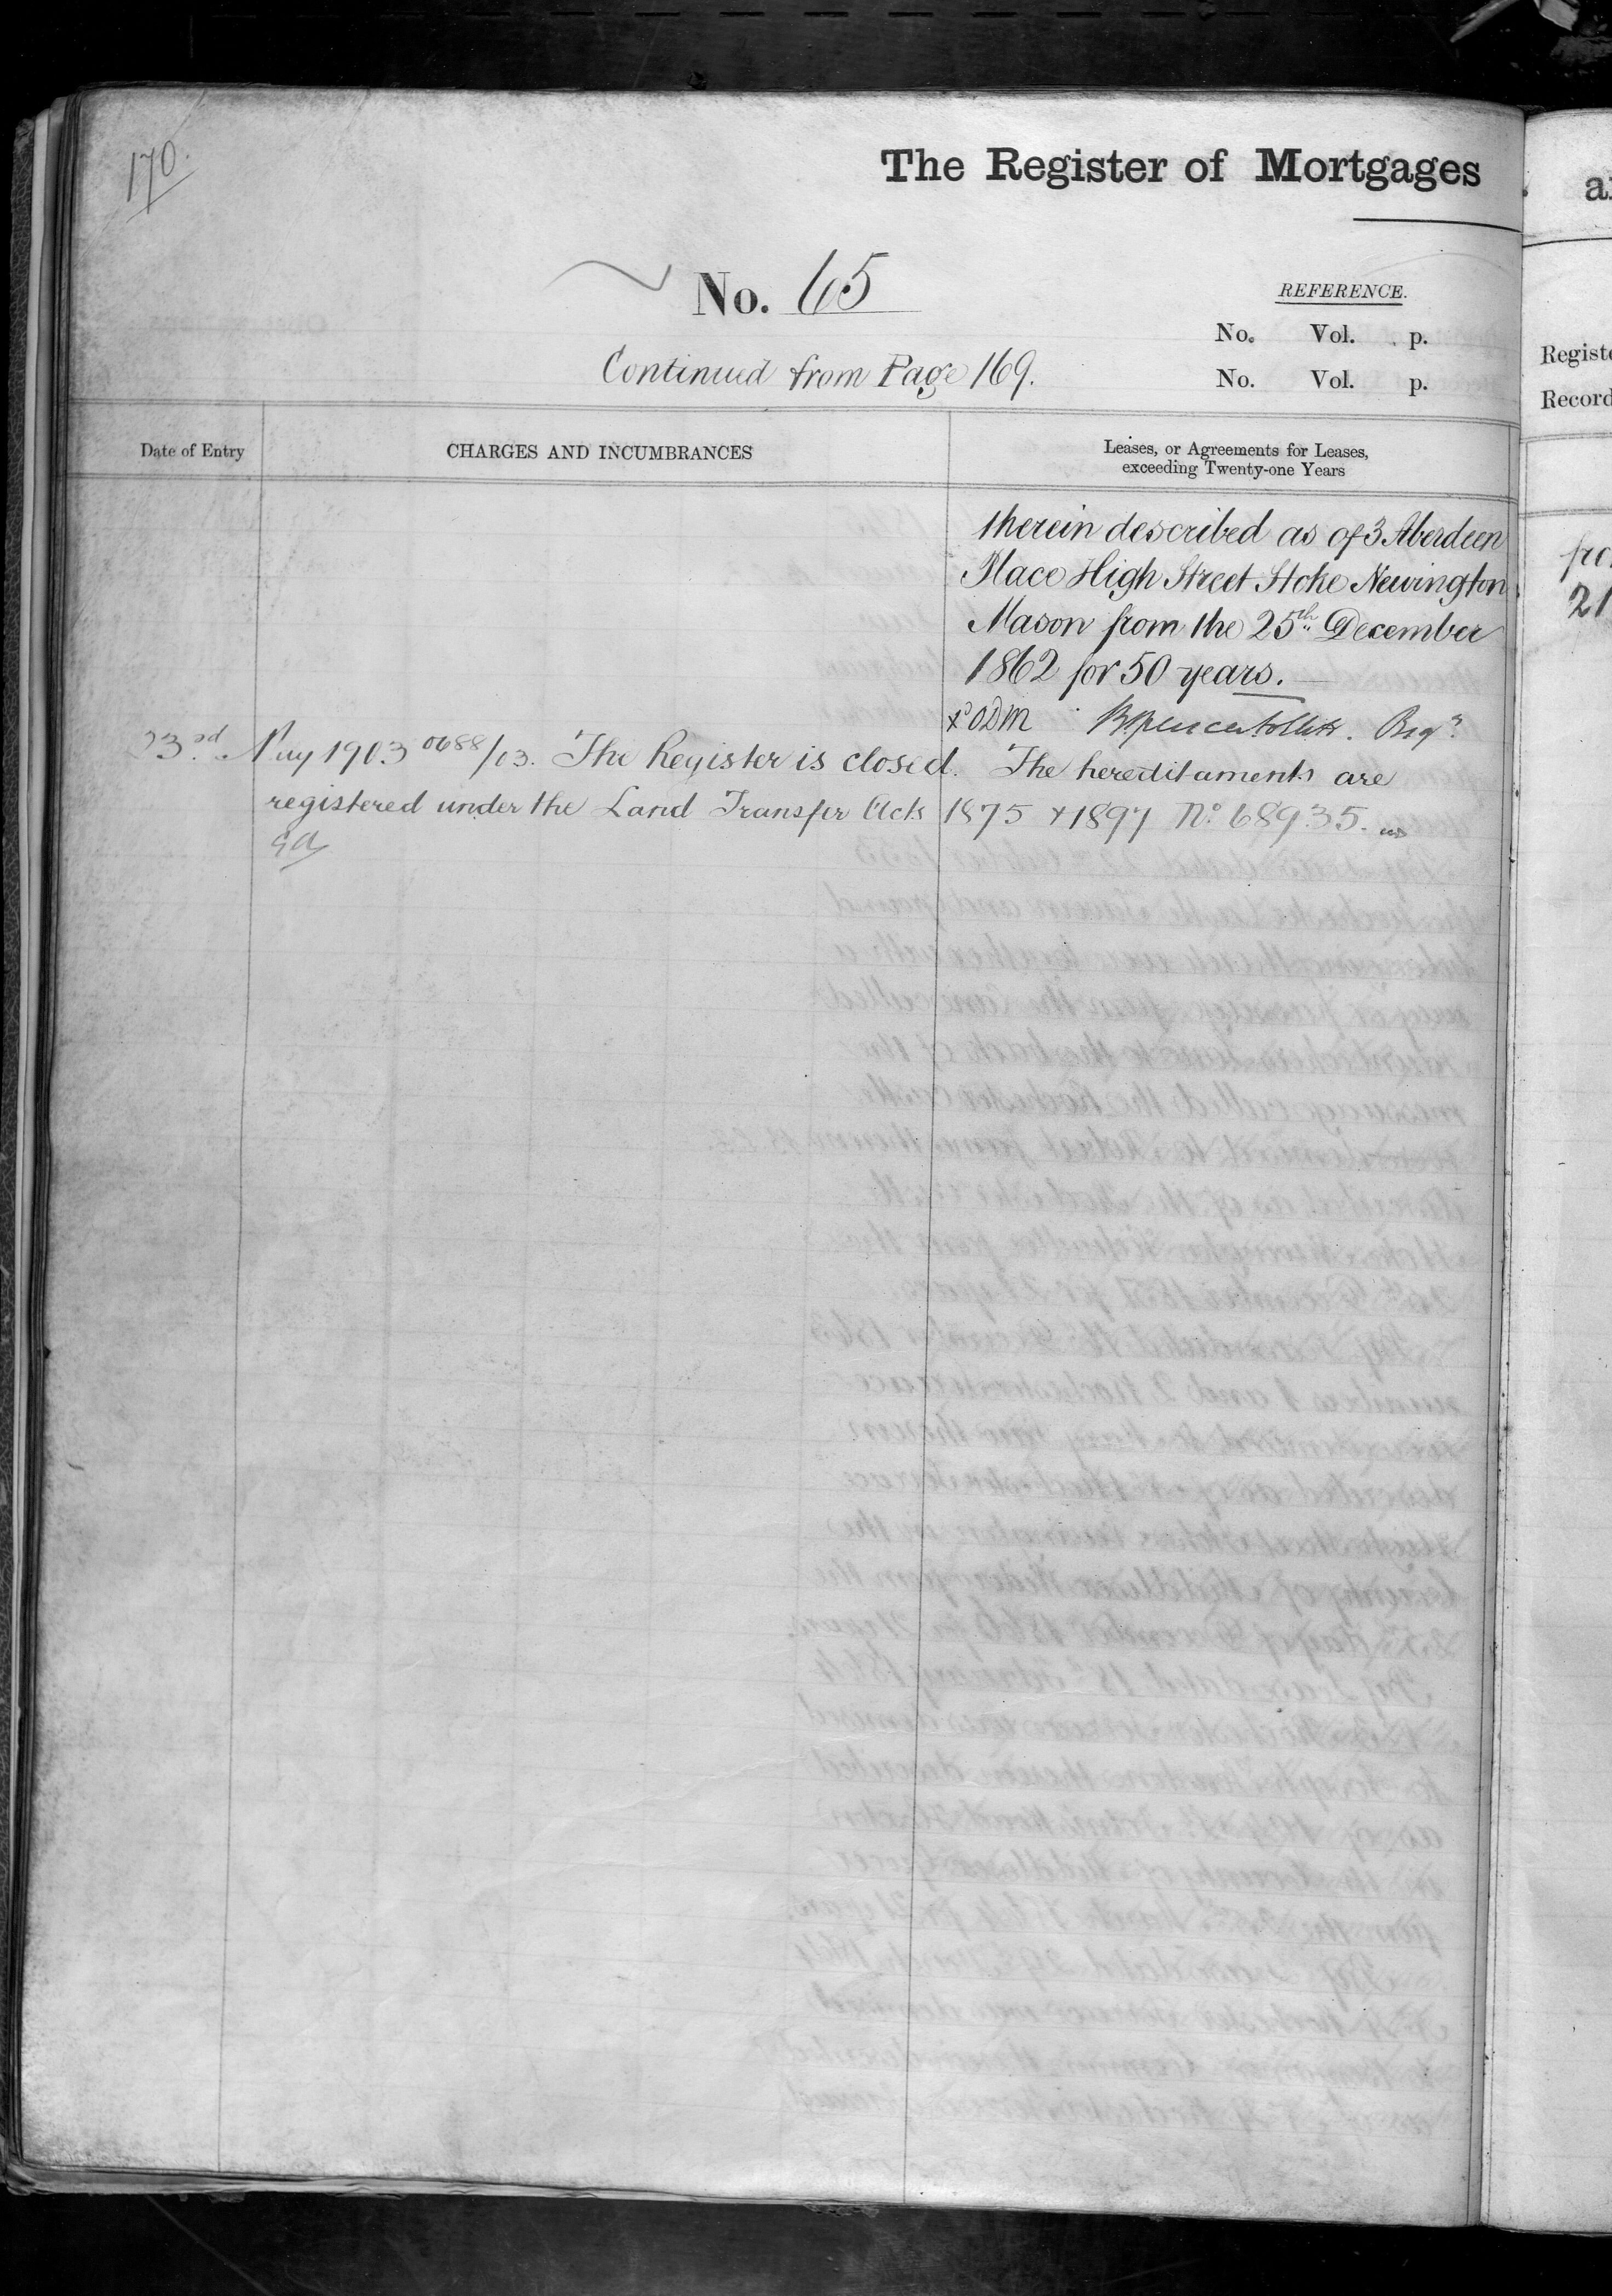 170.
The Register of Mortgages
No. 65
REFERENCE.
No. Vol. p.
Continued from Page 169.
No. Vol. p.
Date of Entry
CHARGES AND INCUMBRANCES
Leases, or Agreements for Leases,
exceeding Twenty-one Years
therein described as of 3 Aberdeen
Place High Street Stoke Newington
Mason from the 25th December
1862 for 50 years.
ODM
23rd May 1903 0688/03. The Register is closed. The hereditaments are
registered under the Land Transfer Acts 1875 & 1897 No. 68935.
Registe
Record
21